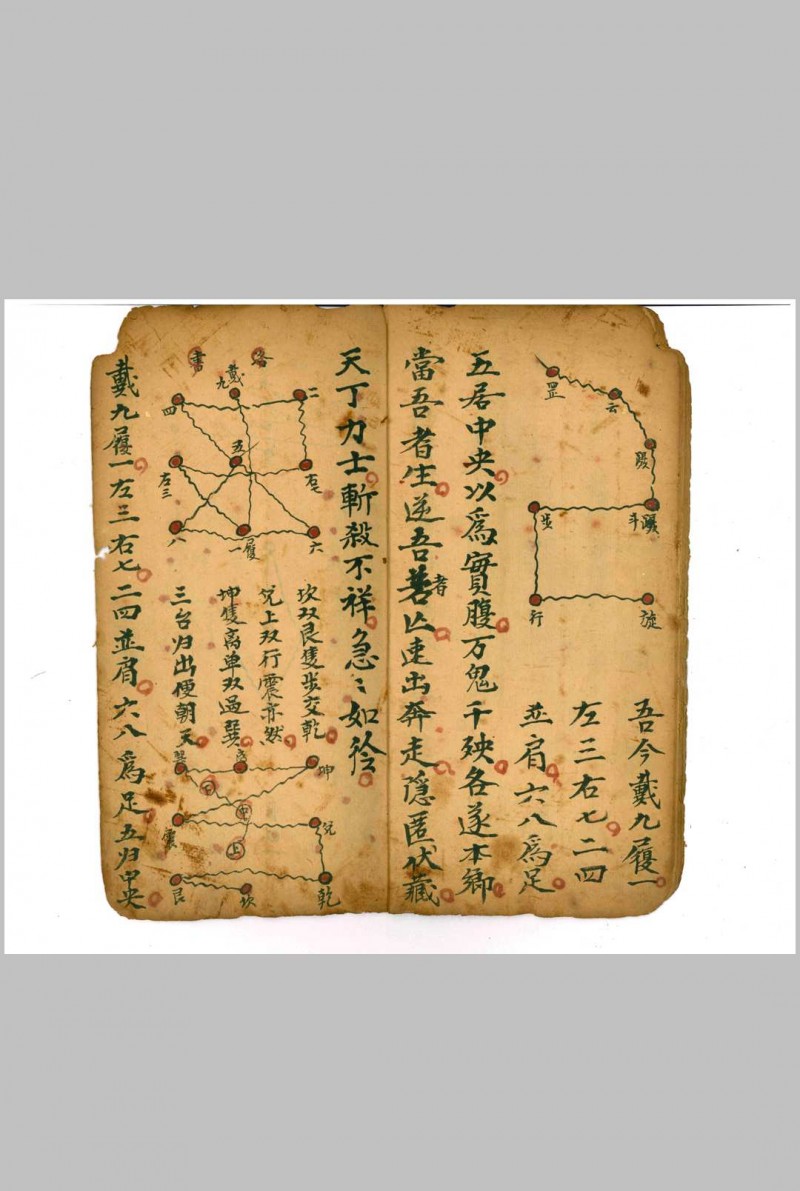 罡
云
斗
步
行
旋
吾今戴九履一
左三右七二四
並肩六八爲足
五居中央以爲實腹万鬼千殃各遂本鄉
當吾者生逆吾善者亾速出奔走隱匿伏藏
天丁力士斬殺不祥急〻如
洛書
戴九
二
四
五
右七
左三
六
履一
八
坎双艮隻步交乾
兌上双行震亦然
坤隻离单双過巽
三台归出便朝天
坤
巽
下
中
上
兌
震
乾
坎
艮
戴九履一左三右七二四並肩六八爲足五归中央